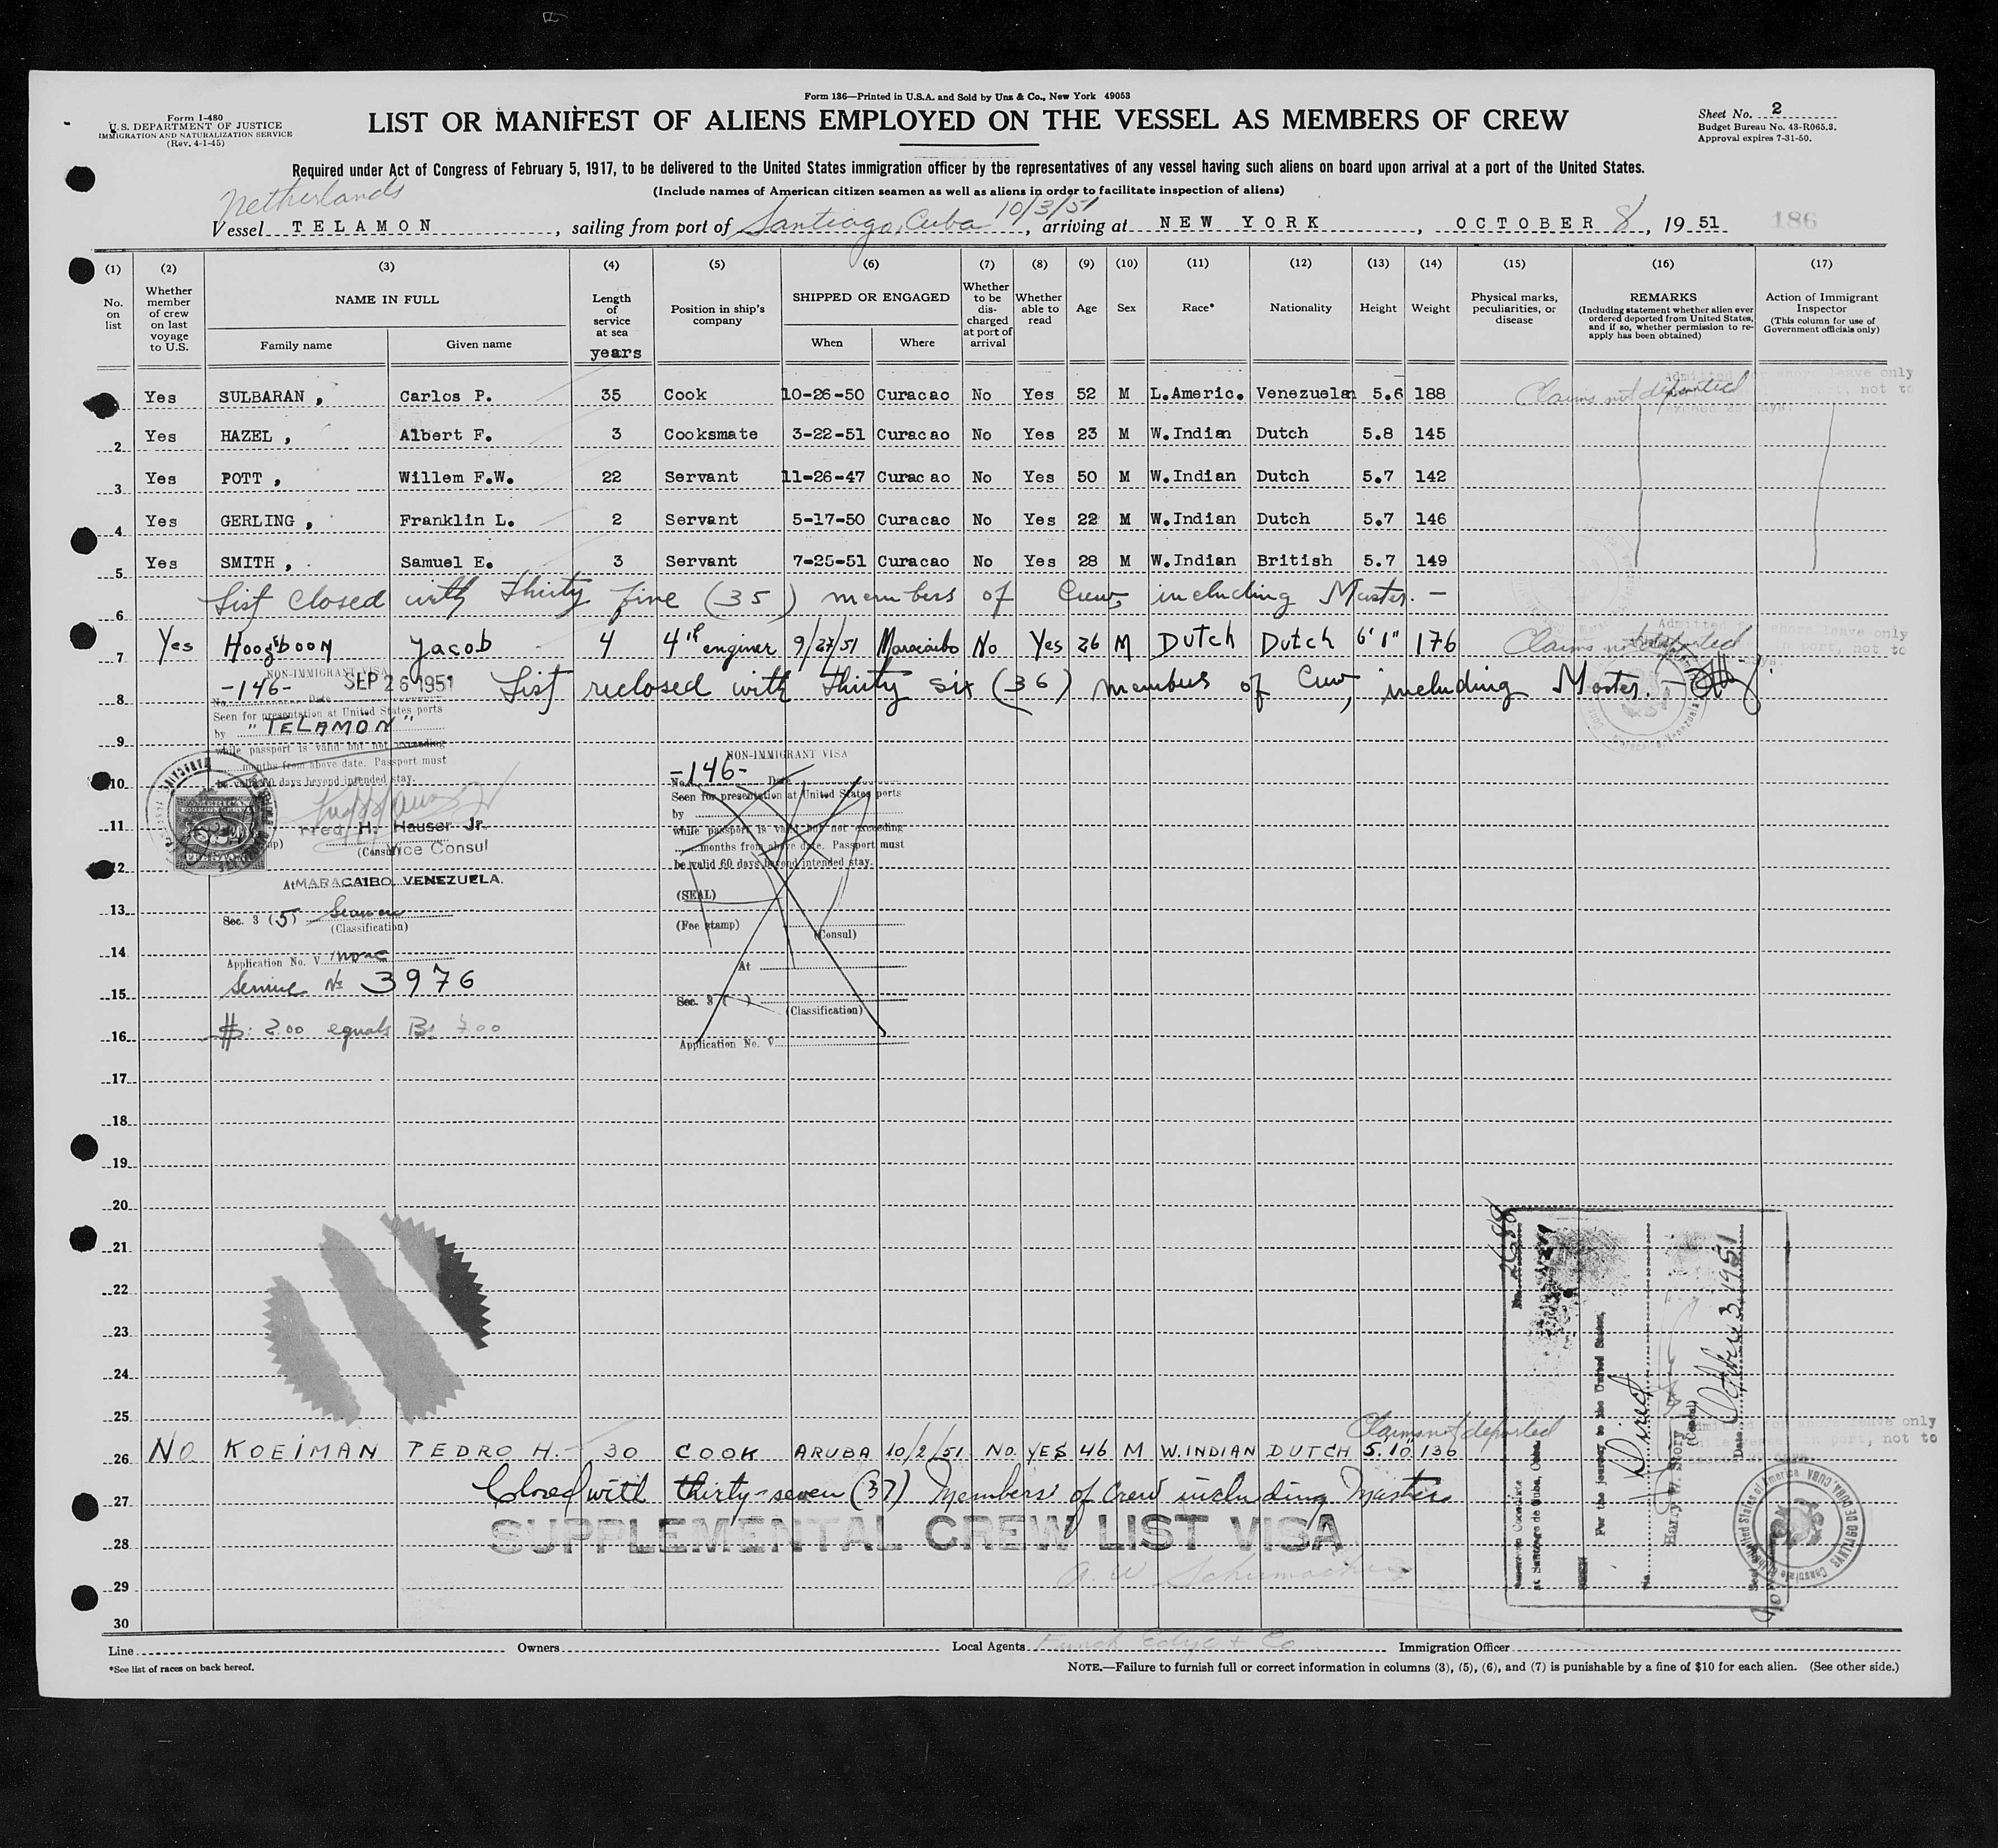 Form 136—Printed in U.S.A. and Sold by Unz & Co., New York 49053
Form I-480
U.S. DEPARTMENT OF JUSTICE
IMMIGRATION AND NATURALIZATION SERVICE
(Rev. 4-1-45)
LIST OR MANIFEST OF ALIENS EMPLOYED ON THE VESSEL AS MEMBERS OF CREW
Sheet No. 2
Budget Bureau No. 43-R065.3.
Approval expires 7-31-50.
Required under Act of Congress of February 5, 1917, to be delivered to the United States immigration officer by the representatives of any vessel having such aliens on board upon arrival at a port of the United States.
(Include names of American citizen seamen as well as aliens in order to facilitate inspection of aliens)
Netherlands
Vessel TELAMON, sailing from port of Santiago, Cuba 10/3/51, arriving at NEW YORK, OCTOBER 8, 19 51 186
(1) (2) (3) (4) (5) (6) (7) (8) (9) (10) (11) (12) (13) (14) (15) (16) (17)
No. on list
Whether member of crew on last voyage to U.S.
NAME IN FULL
Family name
Given name
Length of service at sea
years
Position in ship's company
SHIPPED OR ENGAGED
When
Where
Whether to be discharged at port of arrival
Whether able to read
Age
Sex
Race*
Nationality
Height
Weight
Physical marks, peculiarities, or disease
REMARKS
(Including statement whether alien ever ordered deported from United States, and if so, whether permission to re-apply has been obtained)
Action of Immigrant Inspector
(This column for use of Government officials only)
Yes SULBARAN, Carlos P. 35 Cook 10-26-50 Curacao No Yes 52 M L.Americ. Venezuelan 5.6 188 Claims not deported
Admitted for shore leave only
2 Yes HAZEL, Albert F. 3 Cooksmate 3-22-51 Curacao No Yes 23 M W.Indian Dutch 5.8 145
3 Yes POTT, Willem F.W. 22 Servant 11-26-47 Curacao No Yes 50 M W.Indian Dutch 5.7 142
4 Yes GERLING, Franklin L. 2 Servant 5-17-50 Curacao No Yes 22 M W.Indian Dutch 5.7 146
5 Yes SMITH, Samuel E. 3 Servant 7-25-51 Curacao No Yes 28 M W.Indian British 5.7 149
List closed with thirty five (35) members of Crew, including Master. —
6
7 Yes Hoogboom Jacob 4 4th enginer 9/27/51 Maracaibo No Yes 26 M Dutch Dutch 6'1" 176 Claims not deported
Admitted for shore leave only
in port, not to
List reclosed with thirty six (36) members of Crew, including Master. —
8
NON-IMMIGRANT VISA
No. -146- Date SEP 26 1951
Seen for presentation at United States ports
by "TELAMON"
while passport is valid but not exceeding
months from above date. Passport must
be valid 60 days beyond intended stay.
Fred H. Hauser Jr.
(Consul) Vice Consul
At MARACAIBO, VENEZUELA.
Sec. 3 (5) Seamen
(Classification)
Application No. V none
Service No 3976
$: 2.00 equals Bs 7.00
NON-IMMIGRANT VISA
No. -146- Date
Seen for presentation at United States ports
by
while passport is valid but not exceeding
months from above date. Passport must
be valid 60 days beyond intended stay.
(SEAL)
(Fee stamp)
(Consul)
At
Sec. 3 ( )
(Classification)
Application No. V
9
10
11
12
13
14
15
16
17
18
19
20
21
22
23
24
25
Claims not deported
26 NO KOEIMAN PEDRO H. 30 COOK ARUBA 10/2/51 NO YES 46 M W.INDIAN DUTCH 5.10 136
Admitted for shore leave only
while vessel in port, not to
Closed with thirty-seven (37) Members of Crew including Master
27
SUPPLEMENTAL CREW LIST VISA
28
A. W. Schumacher
29
30
No. 2688
American Consulate
at Santiago de Cuba, Cuba.
For the journey to the United States,
Direct
Harry W. Story
(Consul)
Date October 3 1951
Consulate of the United States of America SANTIAGO DE CUBA, CUBA
Line Owners Local Agents Funch Edye & Co Immigration Officer
*See list of races on back hereof.
NOTE.—Failure to furnish full or correct information in columns (3), (5), (6), and (7) is punishable by a fine of $10 for each alien. (See other side.)